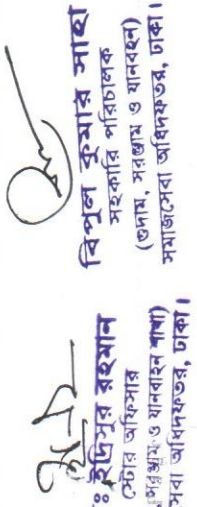 বিপুল কুমার সাহা
সহকারি পরিচালক
(গুদাম, সরঞ্জাম ও যানবাহন)
সমাজসেবা অধিদফতর, ঢাকা।
ঃ ইদিসুর রহমান
স্টোর অফিসার
সরঞ্জাম ও যানবাহন শাখা)
সেবা অধিদফতর, ঢাকা।